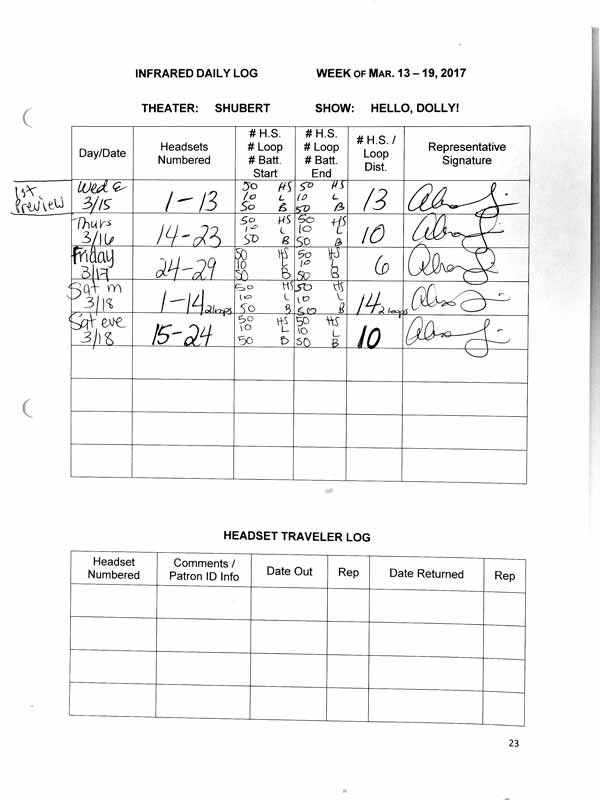 INFRARED DAILY LOG WEEK OF MAR. 13 – 19, 2017
THEATER: SHUBERT SHOW: HELLO, DOLLY!
Day/Date Headsets Numbered # H.S. # Loop # Batt. Start # H.S. # Loop # Batt. End # H.S. / Loop Dist. Representative Signature
1st Preview Wed E 3/15 1-13 50 HS 10 L 50 B 50 HS 10 L 50 B 13
Thurs 3/16 14-23 50 HS 10 L 50 B 50 HS 10 L 50 B 10
Friday 3/17 24-29 50 HS 10 L 50 B 50 HS 10 L 50 B 6
Sat m 3/18 1-14 2 loops 50 HS 10 L 50 B 50 HS 10 L 50 B 14 2 loops
Sat eve 3/18 15-24 50 HS 10 L 50 B 50 HS 10 L 50 B 10
HEADSET TRAVELER LOG
Headset Numbered Comments / Patron ID Info Date Out Rep Date Returned Rep
23